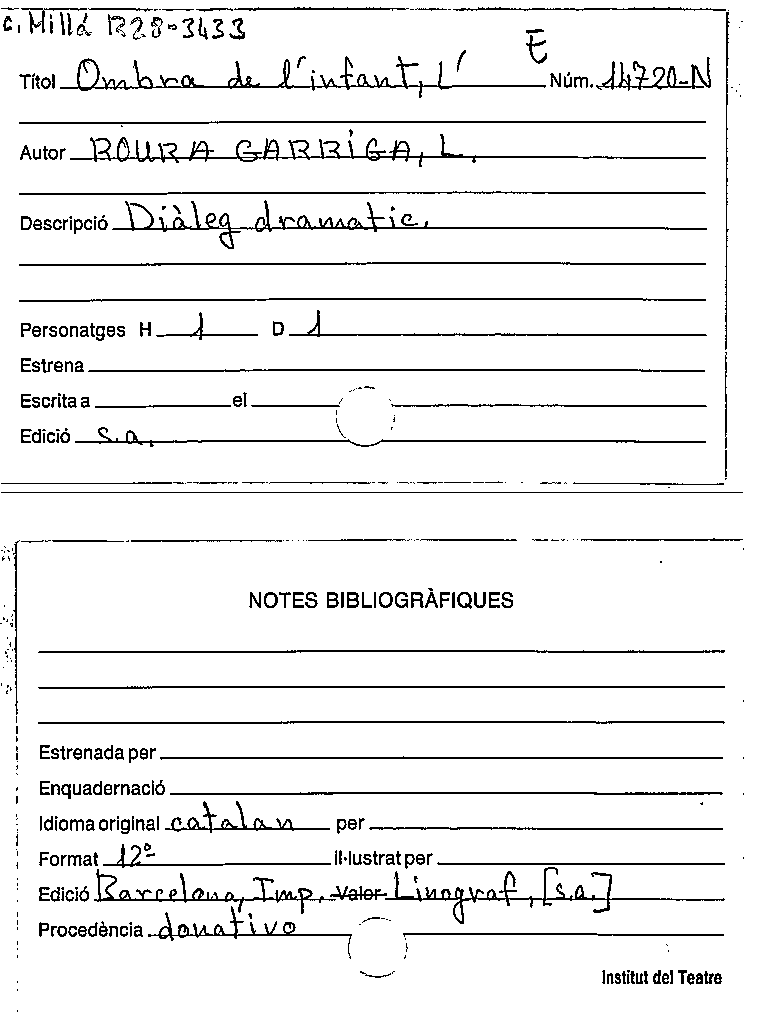 c. Millá R28-3433
E
Títol Ombra de l'infant, L' Núm. 14720-N
Autor ROURA GARRIGA, L.
Descripció Diàleg dramatic.
Personatges H 1 D 1
Estrena
Escrita a el
Edició s.a.
NOTES BIBLIOGRÀFIQUES
Estrenada per
Enquadernació
Idioma original catalan per
Format 12º Il·lustrat per
Edició Barcelona, Imp. Valor Linograf, [s.a.]
Procedència donativo
Institut del Teatre